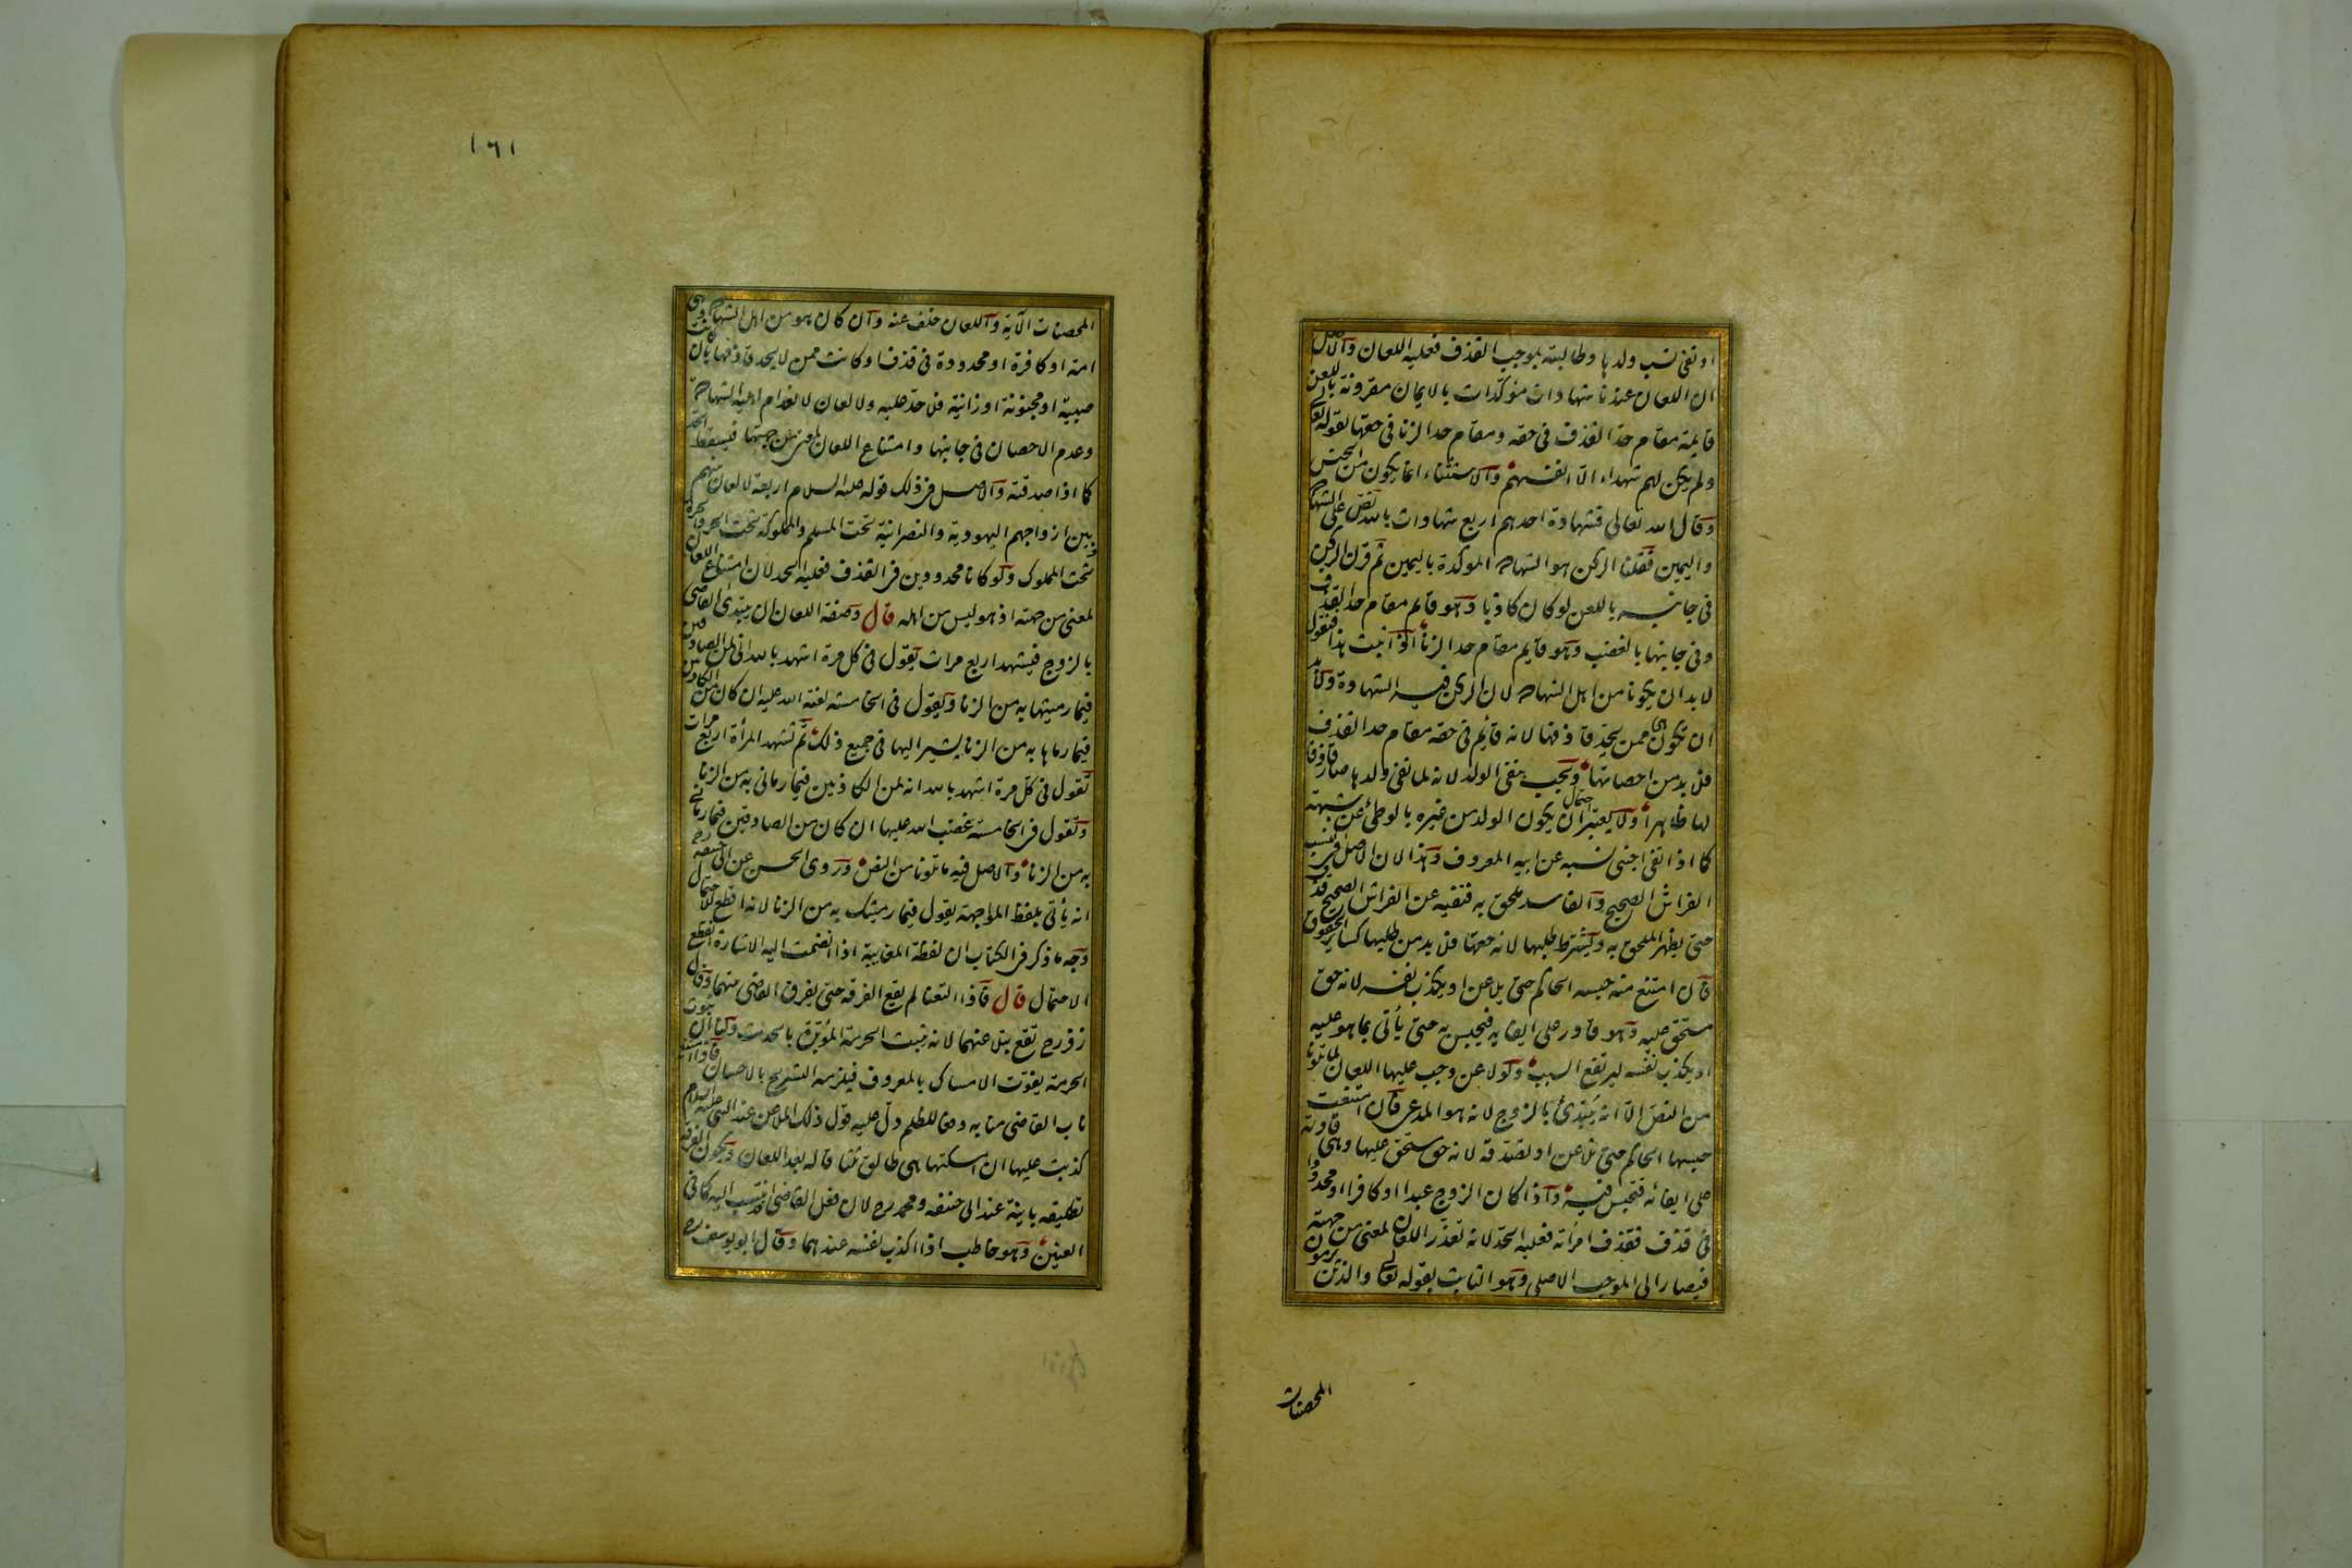 او نفى نسب ولدها وطالبته بموجب القذف فعليه اللعان والاصل
ان اللعان عندنا شهادات مؤكدات بالايمان مقرونة باللعن
قايمة مقام حد القذف فى حقه ومقام حد الزنا فى حقها لقوله تعالى
ولم يكن لهم شهداء الا انفسهم والاستثناء انما يكون من الجنس
وقال الله تعالى فشهادة احدهم اربع شهادات بالله نص على الشهادة
واليمين فقلنا الركن هو الشهادة الموكدة باليمين ثم قرن الركن
فى جانبه باللعن لو كان كاذبا وهو قايم مقام حد القذف
وفى جانبها بالغضب وهو قايم مقام حد الزنا اذا ثبت هذا فنقول
لا بد ان يكونا من اهل الشهادة لان الركن فيه الشهادة ولا بد
ان تكون هى ممن يحد قاذفها لانه قايم فى حقه مقام حد القذف
فلا بد من احصانها ويجب بنفى الولد لانه لما نفى ولدها صار قاذفا
لها ظاهرا ولا يعتبر احتمال ان يكون الولد من غيره بالوطئ عن شبهة
كما اذا نفى اجنبى نسبه عن ابيه المعروف وهذا لان الاصل فى النسب
الفراش الصحيح والفاسد ملحق به فنفيه عن الفراش الصحيح قذف
حتى يظهر الملحق به ويشترط طلبها لانه حقها فلا بد من طلبها كساير الحقوق
فان امتنع منه حبسه الحاكم حتى يلاعن او يكذب نفسه لانه حق
مستحق عليه وهو قادر على ايفايه فيحبس به حتى يأتى بما هو عليه
او يكذب نفسه ليرتفع السبب ولو لاعن وجب عليها اللعان لما تلونا
من النص الا انه يبتدئ بالزوج لانه هو المدعى فان امتنعت
حبسها الحاكم حتى تلاعن او تصدقه لانه حق مستحق عليها وهى قادرة
على ايفائه فتحبس فيه واذا كان الزوج عبدا او كافرا او محدودا
فى قذف فقذف امرأته فعليه الحد لانه تعذر اللعان لمعنى من جهته
فيصار الى الموجب الاصلى وهو الثابت بقوله تعالى والذين يرمون
المحصنات
١٦١
المحصنات الآية واللعان خلف عنه وان كان هو من اهل الشهادة وهى
امة او كافرة او محدودة فى قذف او كانت ممن لا يحد قاذفها بان كانت
صبية او مجنونة او زانية فلا حد عليه ولا لعان لانعدام اهلية الشهادة
وعدم الاحصان فى جانبها وامتناع اللعان لمعنى من جهتها فيسقط الحد
كما اذا صدقته والاصل فى ذلك قوله عليه السلام اربعة لا لعان بينهم
وبين ازواجهم اليهودية والنصرانية تحت المسلم والمملوكة تحت الحر والحرة
تحت المملوك ولو كانا محدودين فى القذف فعليه الحد لان امتناع اللعان
لمعنى من جهته اذ هو ليس من اهله قال وصفة اللعان ان يبتدئ القاضى
بالزوج فيشهد اربع مرات يقول فى كل مرة اشهد بالله انى لمن الصادقين
فيما رميتها به من الزنا ويقول فى الخامسة لعنة الله عليه ان كان من الكاذبين
فيما رماها به من الزنا يشير اليها فى جميع ذلك ثم تشهد المرأة اربع مرات
تقول فى كل مرة اشهد بالله انه لمن الكاذبين فيما رمانى به من الزنا
وتقول فى الخامسة غضب الله عليها ان كان من الصادقين فيما رمانى
به من الزنا والاصل فيه ما تلونا من النص وروى الحسن عن ابى حنيفة رح
انه يأتى بلفظ المواجهة يقول فيما رميتك به من الزنا لانه اقطع للاحتمال
وجه ما ذكر فى الكتاب ان لفظة المغايبة اذا انضمت اليه الاشارة انقطع
الاحتمال قال فاذا التعنا لم يقع الفرقة حتى يفرق القاضى بينهما وقال
زفر رح تقع بتلاعنهما لانه تثبت الحرمة المؤبدة بالحديث ولنا ان ثبوت
الحرمة يفوت الامساك بالمعروف فيلزمه التسريح بالاحسان فاذا امتنع
ناب القاضى منابه دفعا للظلم دل عليه قول ذلك الملاعن عند النبى عليه السلام
كذبت عليها ان امسكتها هى طالق ثلثا قاله بعد اللعان ويكون الفرقة
تطليقة باينة عند ابى حنيفة ومحمد رح لان فعل القاضى انتسب اليه كما فى
العنين وهو خاطب اذا اكذب نفسه عندهما وقال ابو يوسف رح